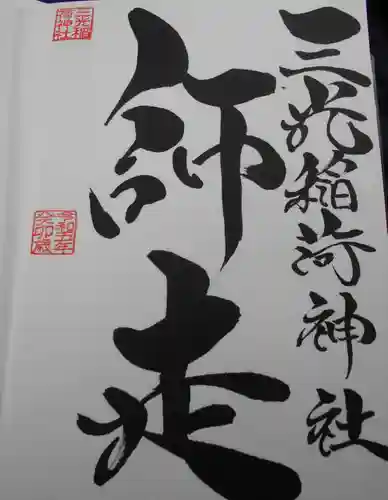 三光稲荷神社
師走
三光稲荷神社
令和五年
癸卯歳